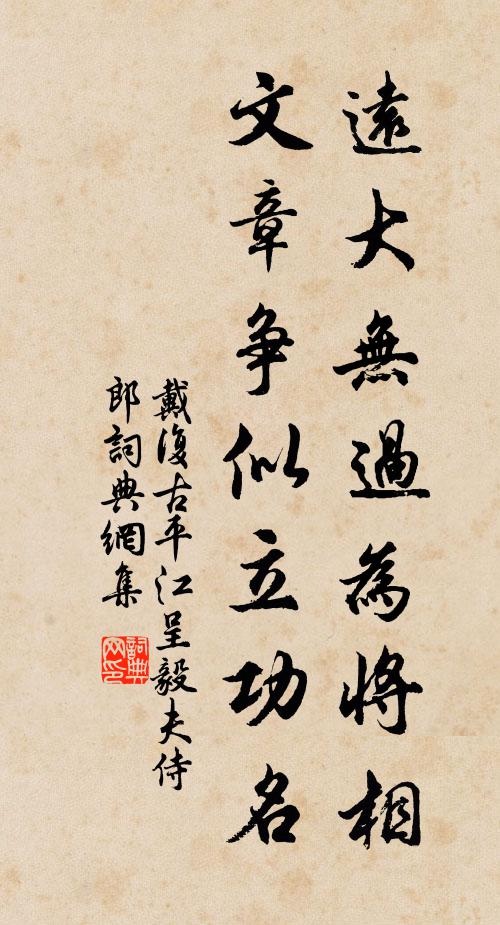 遠大無過為將相
文章争似立功名
戴復古平江呈毅夫侍
郎詞典網集
詞典
网印